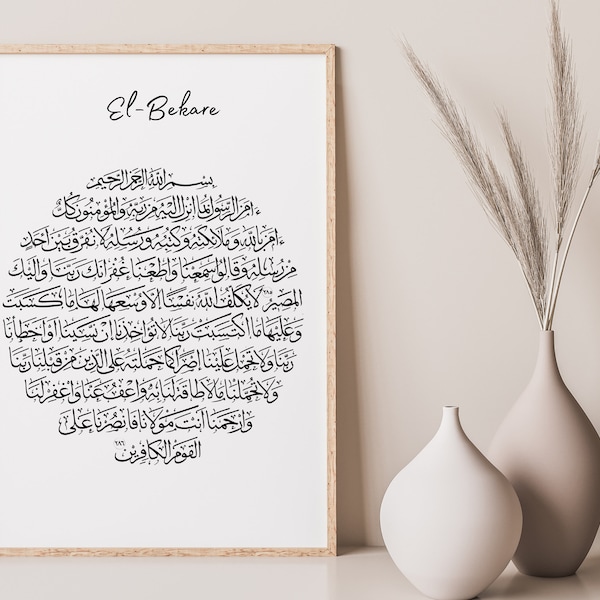 El-Bekare
بسم الله الرحمن الرحيم
ءامن الرسول بما انزل اليه من ربه والمؤمنون كل
ءامن بالله وملائكته وكتبه ورسله لا نفرق بين احد
من رسله وقالوا سمعنا واطعنا غفرانك ربنا واليك
المصير ٢٨٥ لا يكلف الله نفسا الا وسعها لها ما كسبت
وعليها ما اكتسبت ربنا لا تؤاخذنا ان نسينا أو أخطأنا
ربنا ولا تحمل علينا إصرا كما حملته على الذين من قبلنا ربنا
ولا تحملنا ما لا طاقة لنا به واعف عنا واغفر لنا
وارحمنا أنت مولانا فانصرنا على
القوم الكافرين ٢٨٦